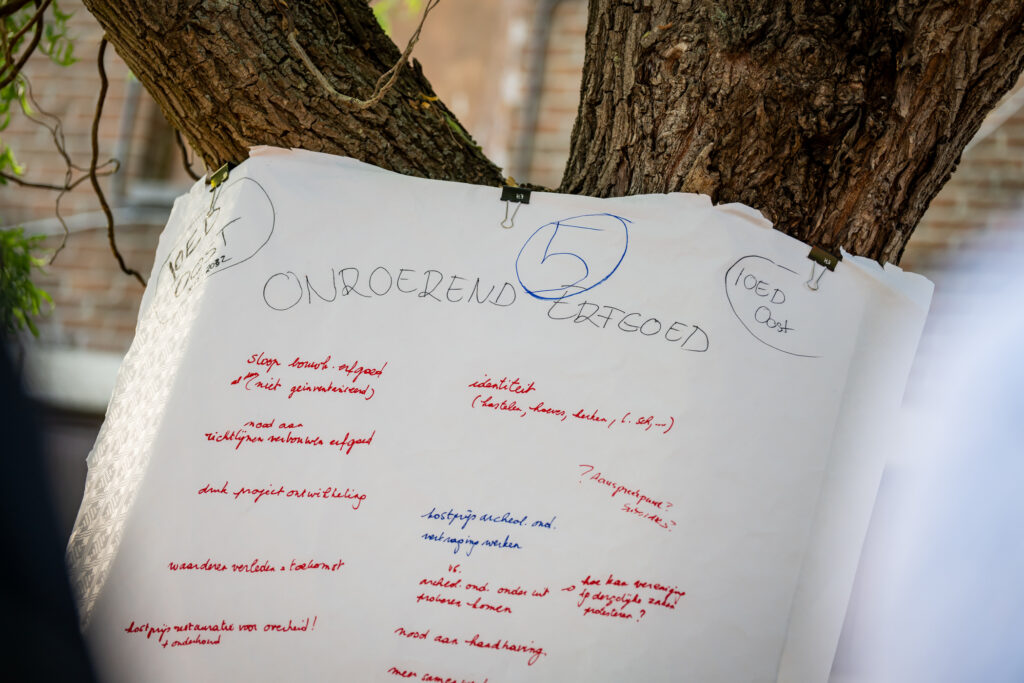 IOED
OOST
5
ONROEREND ERFGOED
IOED
Oost
sloop bouwk. erfgoed
(niet geïnventariseerd)
nood aan
richtlijnen verbouwen erfgoed
druk projectontwikkeling
waarderen verleden + toekomst
kostprijs restauratie voor overheid!
+ onderhoud
identiteit
(kastelen, hoeves, kerken,
? Aanspreekpunt?
Subsidies?
kostprijs archeol. ond.
vertraging werken
vs.
archeol. ond. onder uit
proberen komen
→ hoe kan vereniging
op dergelijke zaken
protesteren?
nood aan handhaving.
meer